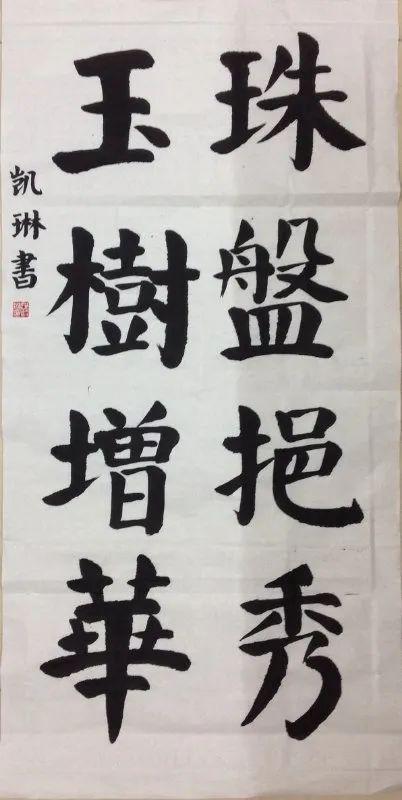 珠盤挹秀
玉樹增華
凱琳書